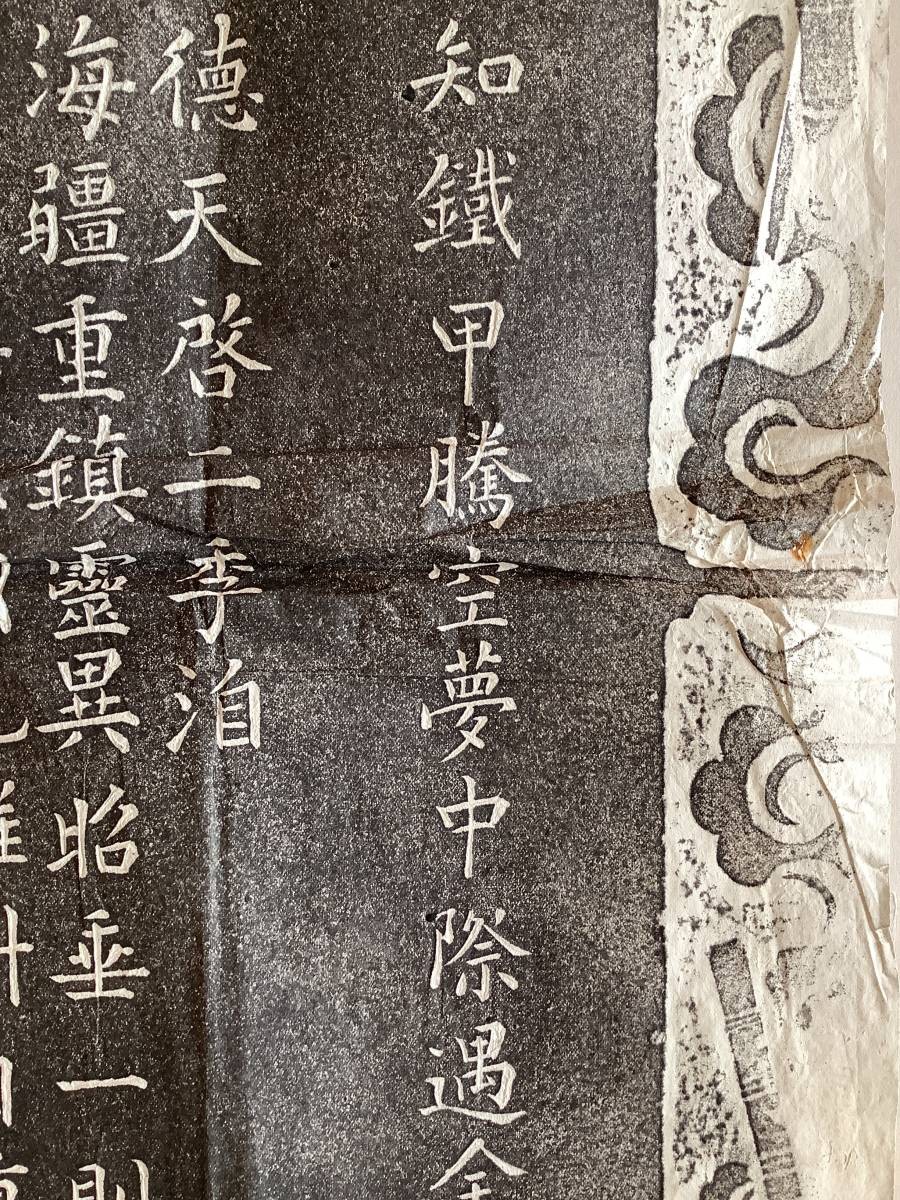 知鐵甲騰空夢中際遇金
德天啓二季洎
海疆重鎮靈異昭垂一則